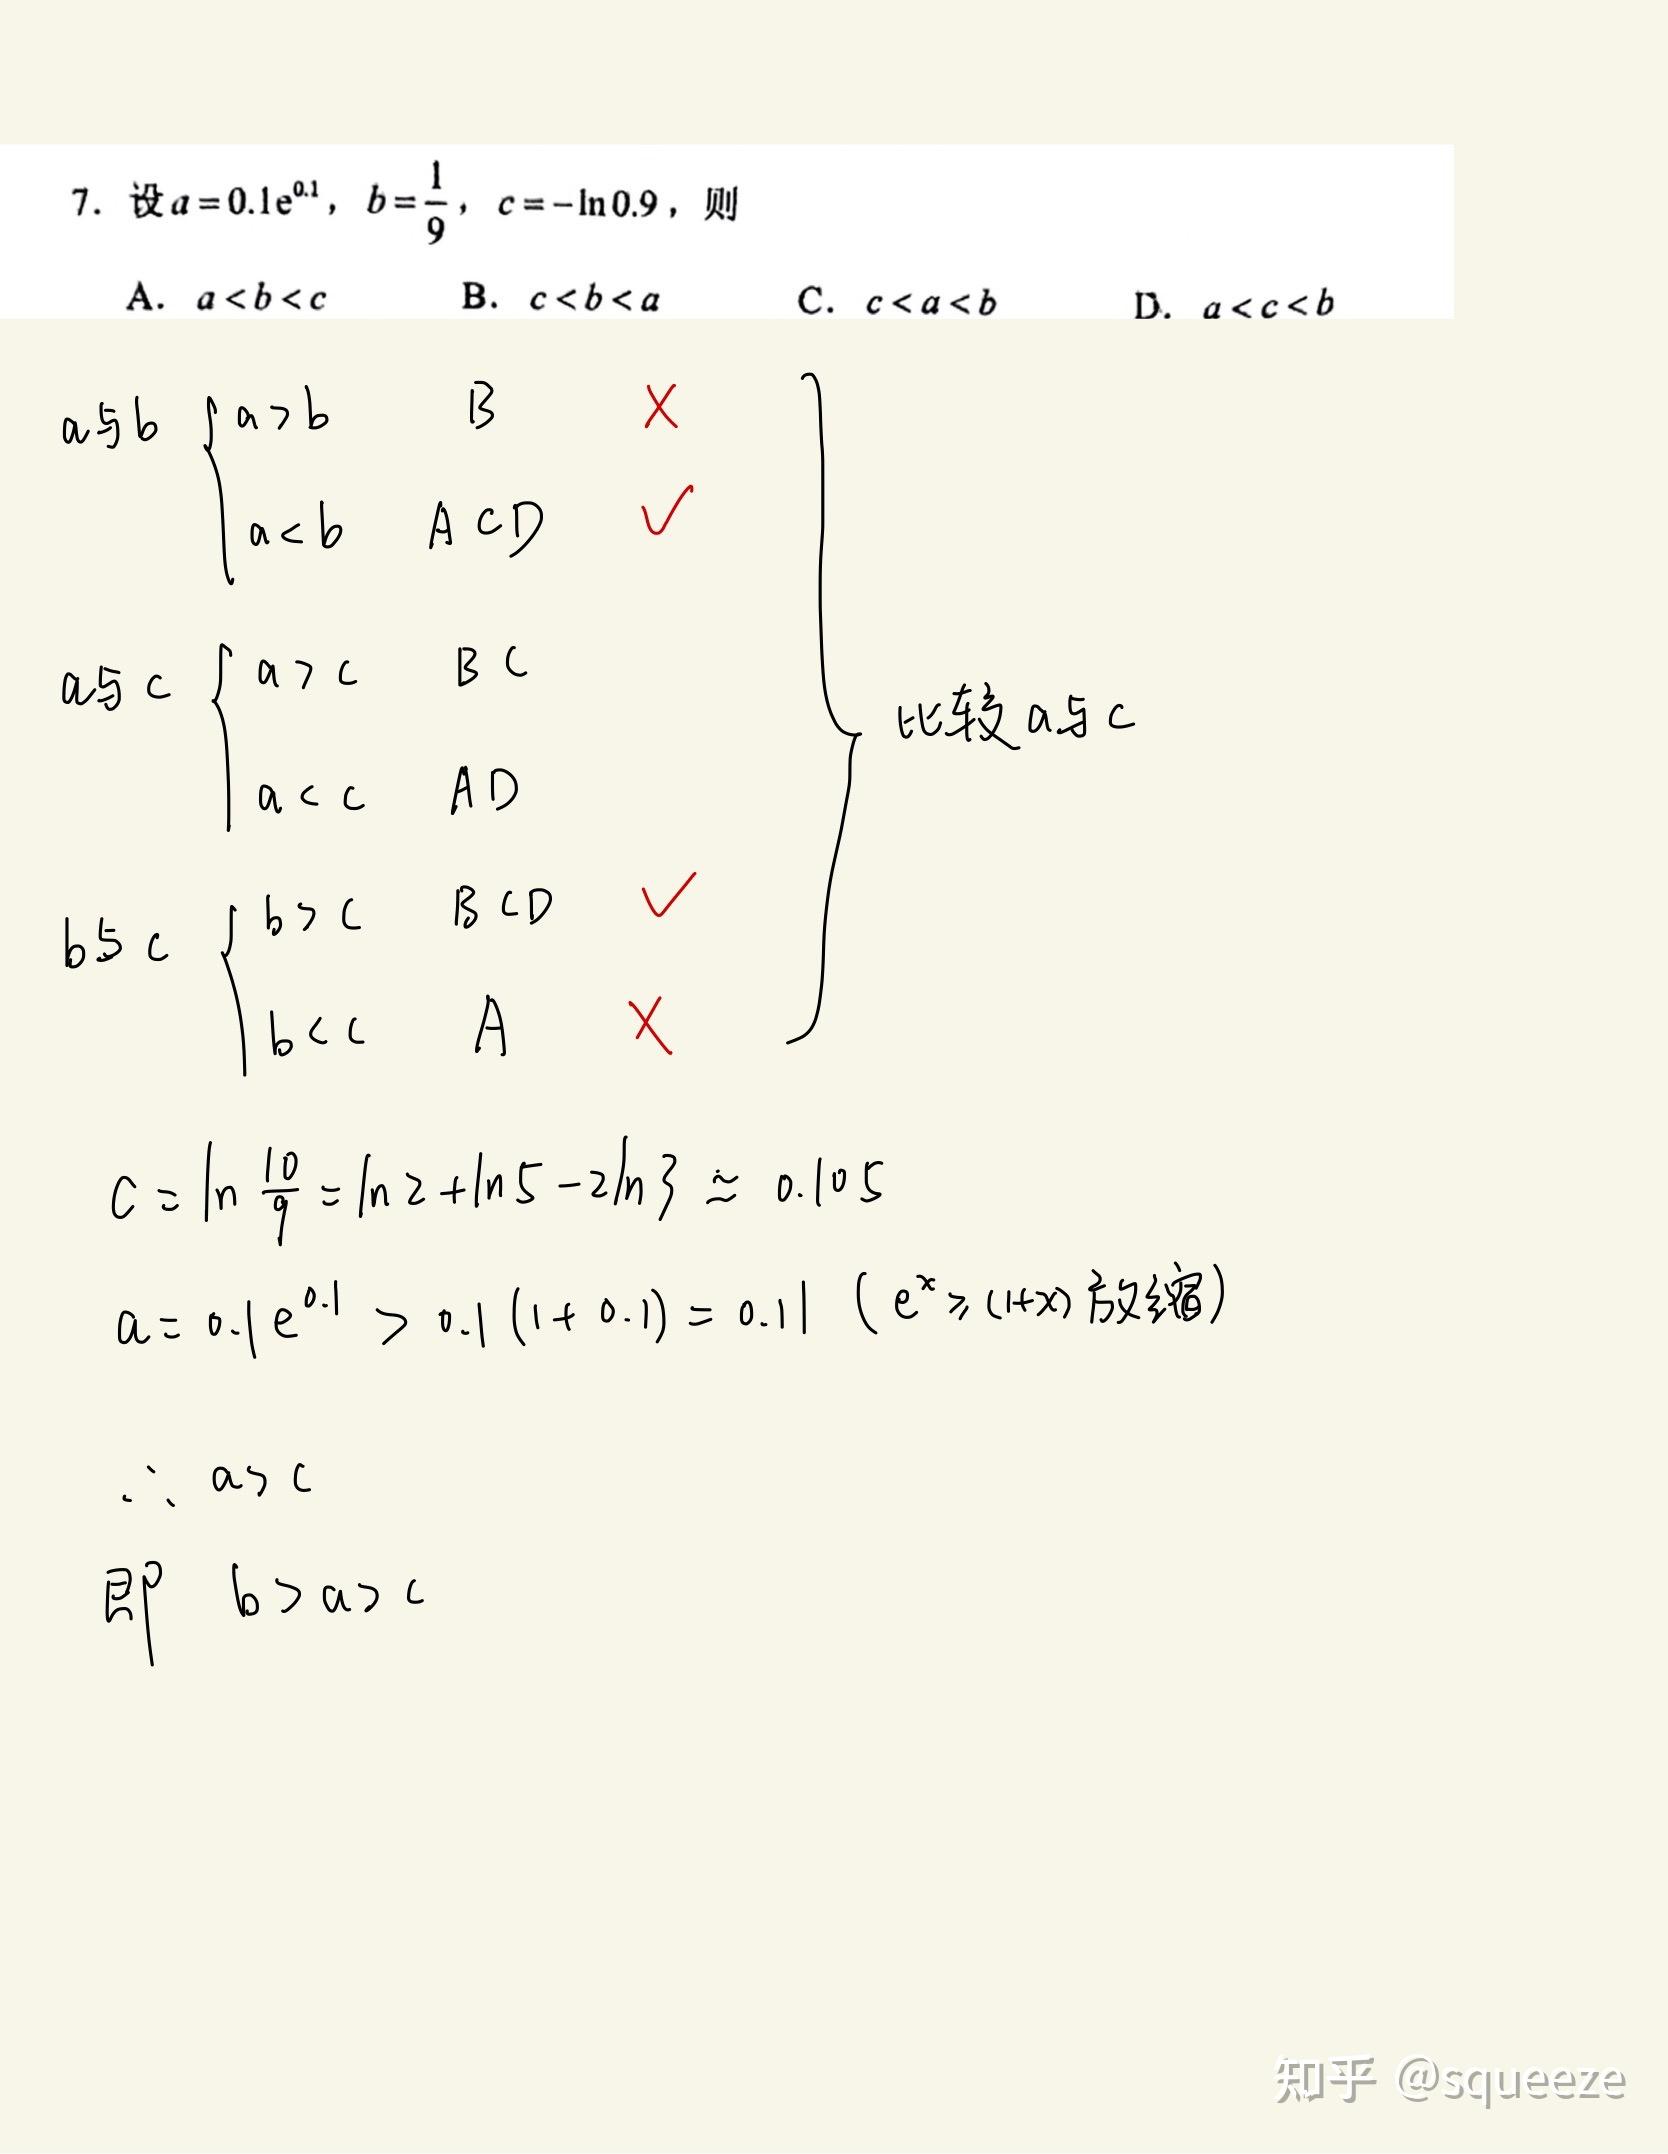 7. 设a=0.1e^{0.1}, b=\frac{1}{9}, c=-ln0.9, 则
A. a<b<c B. c<b<a C. c<a<b D. a<c<b
a与b { a>b B ✗
a<b ACD ✓
a与c { a>c BC
a<c AD
比较a与c
b与c { b>c BCD ✓
b<c A ✗
c=ln\frac{10}{9}=ln2+ln5-2ln3≈0.105
a=0.1e^{0.1}>0.1(1+0.1)=0.11 (e^x≥(1+x)放缩)
∴ a>c
即 b>a>c
知乎 @squeeze